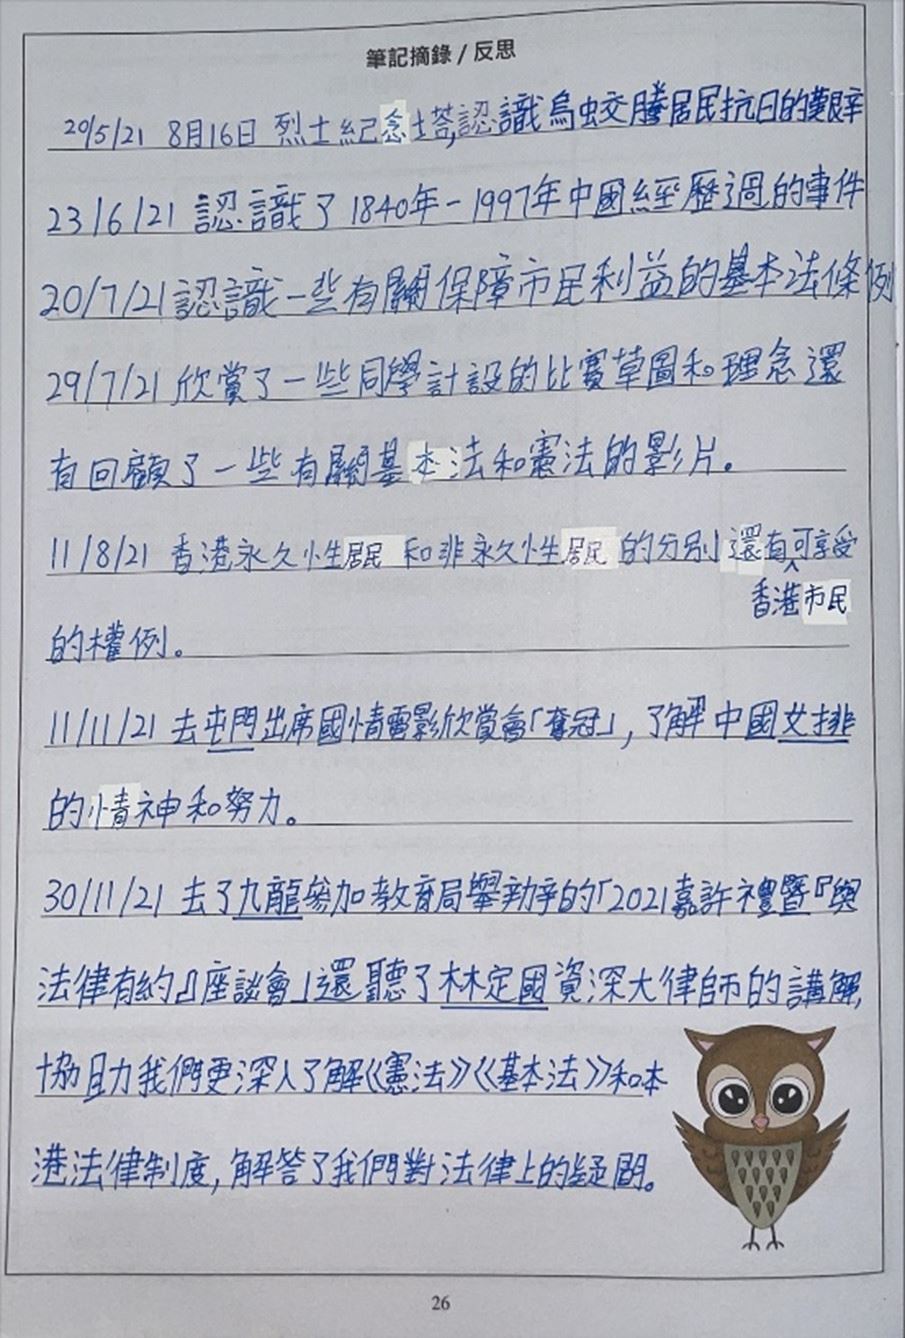 筆記摘錄 / 反思
20/5/21 8月16日 烈士紀念塔,認識烏蛟騰居民抗日的艱辛
23/6/21 認識了1840年-1997年中國經歷過的事件
20/7/21 認識一些有關保障市民利益的基本法條例
29/7/21 欣賞了一些同學計設的比賽草圖和理念還
有回顧了一些有關基本法和憲法的影片。
11/8/21 香港永久性居民 和非永久性居民 的分別 還有可享受
香港市民
的權例。
11/11/21 去屯門出席國情電影欣賞會「奪冠」,了解中國女排
的情神和努力。
30/11/21 去了九龍參加教育局舉辦的「2021嘉許禮暨『與
法律有約』座談會」還聽了林定國資深大律師的講解,
協助我們更深入了解《憲法》《基本法》和本
港法律制度,解答了我們對法律上的疑問。
26